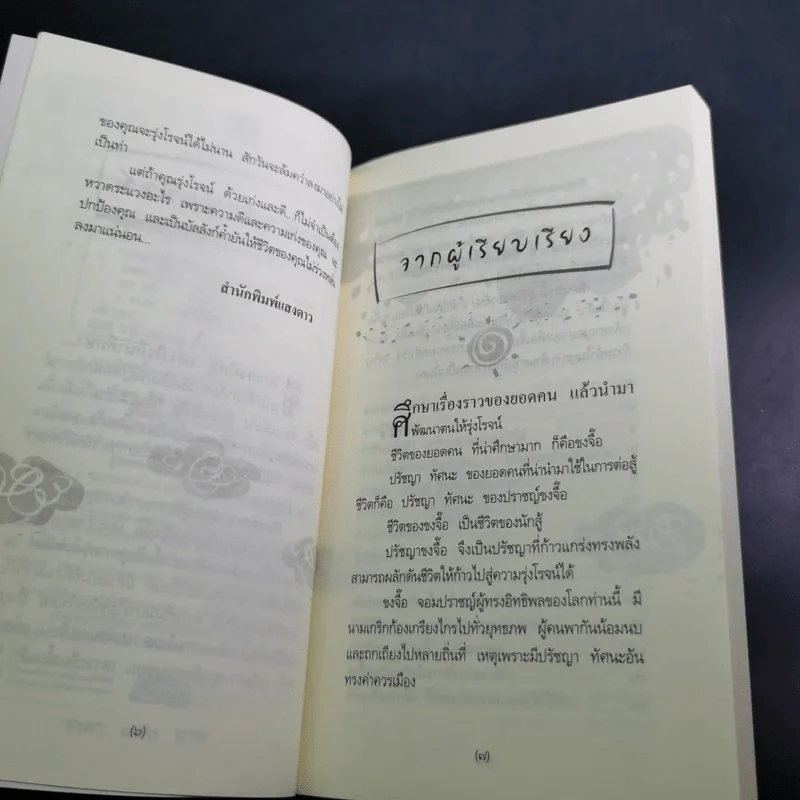 ของคุณจะรุ่งโรจน์ได้ไม่นาน สักวันจะล้มคว่ำลงมาอย่างไม่
เป็นท่า
แต่ถ้าคุณรุ่งโรจน์ ด้วยเก่งและดี...ก็ไม่จำเป็นต้อง
หวาดระแวงอะไร เพราะความดีและความเก่งของคุณ จะ
ปกป้องคุณ และเป็นบัลลังก์ค้ำยันให้ชีวิตของคุณไม่ร่วงหล่น
ลงมาแน่นอน...
สำนักพิมพ์แสงดาว
(๖)
จากผู้เรียบเรียง
ศึกษาเรื่องราวของยอดคน แล้วนำมา
พัฒนาตนให้รุ่งโรจน์
ชีวิตของยอดคน ที่น่าศึกษามาก ก็คือขงจื๊อ
ปรัชญา ทัศนะ ของยอดคนที่น่านำมาใช้ในการต่อสู้
ชีวิตก็คือ ปรัชญา ทัศนะ ของปราชญ์ขงจื๊อ
ชีวิตของขงจื๊อ เป็นชีวิตของนักสู้
ปรัชญาขงจื๊อ จึงเป็นปรัชญาที่ก้าวแกร่งทรงพลัง
สามารถผลักดันชีวิตให้ก้าวไปสู่ความรุ่งโรจน์ได้
ขงจื๊อ จอมปราชญ์ผู้ทรงอิทธิพลของโลกท่านนี้ มี
นามเกริกก้องเกรียงไกรไปทั่วยุทธภพ ผู้คนพากันน้อมนบ
และถกเถียงไปหลายถิ่นที่ เหตุเพราะมีปรัชญา ทัศนะอัน
ทรงค่าควรเมือง
(๗)